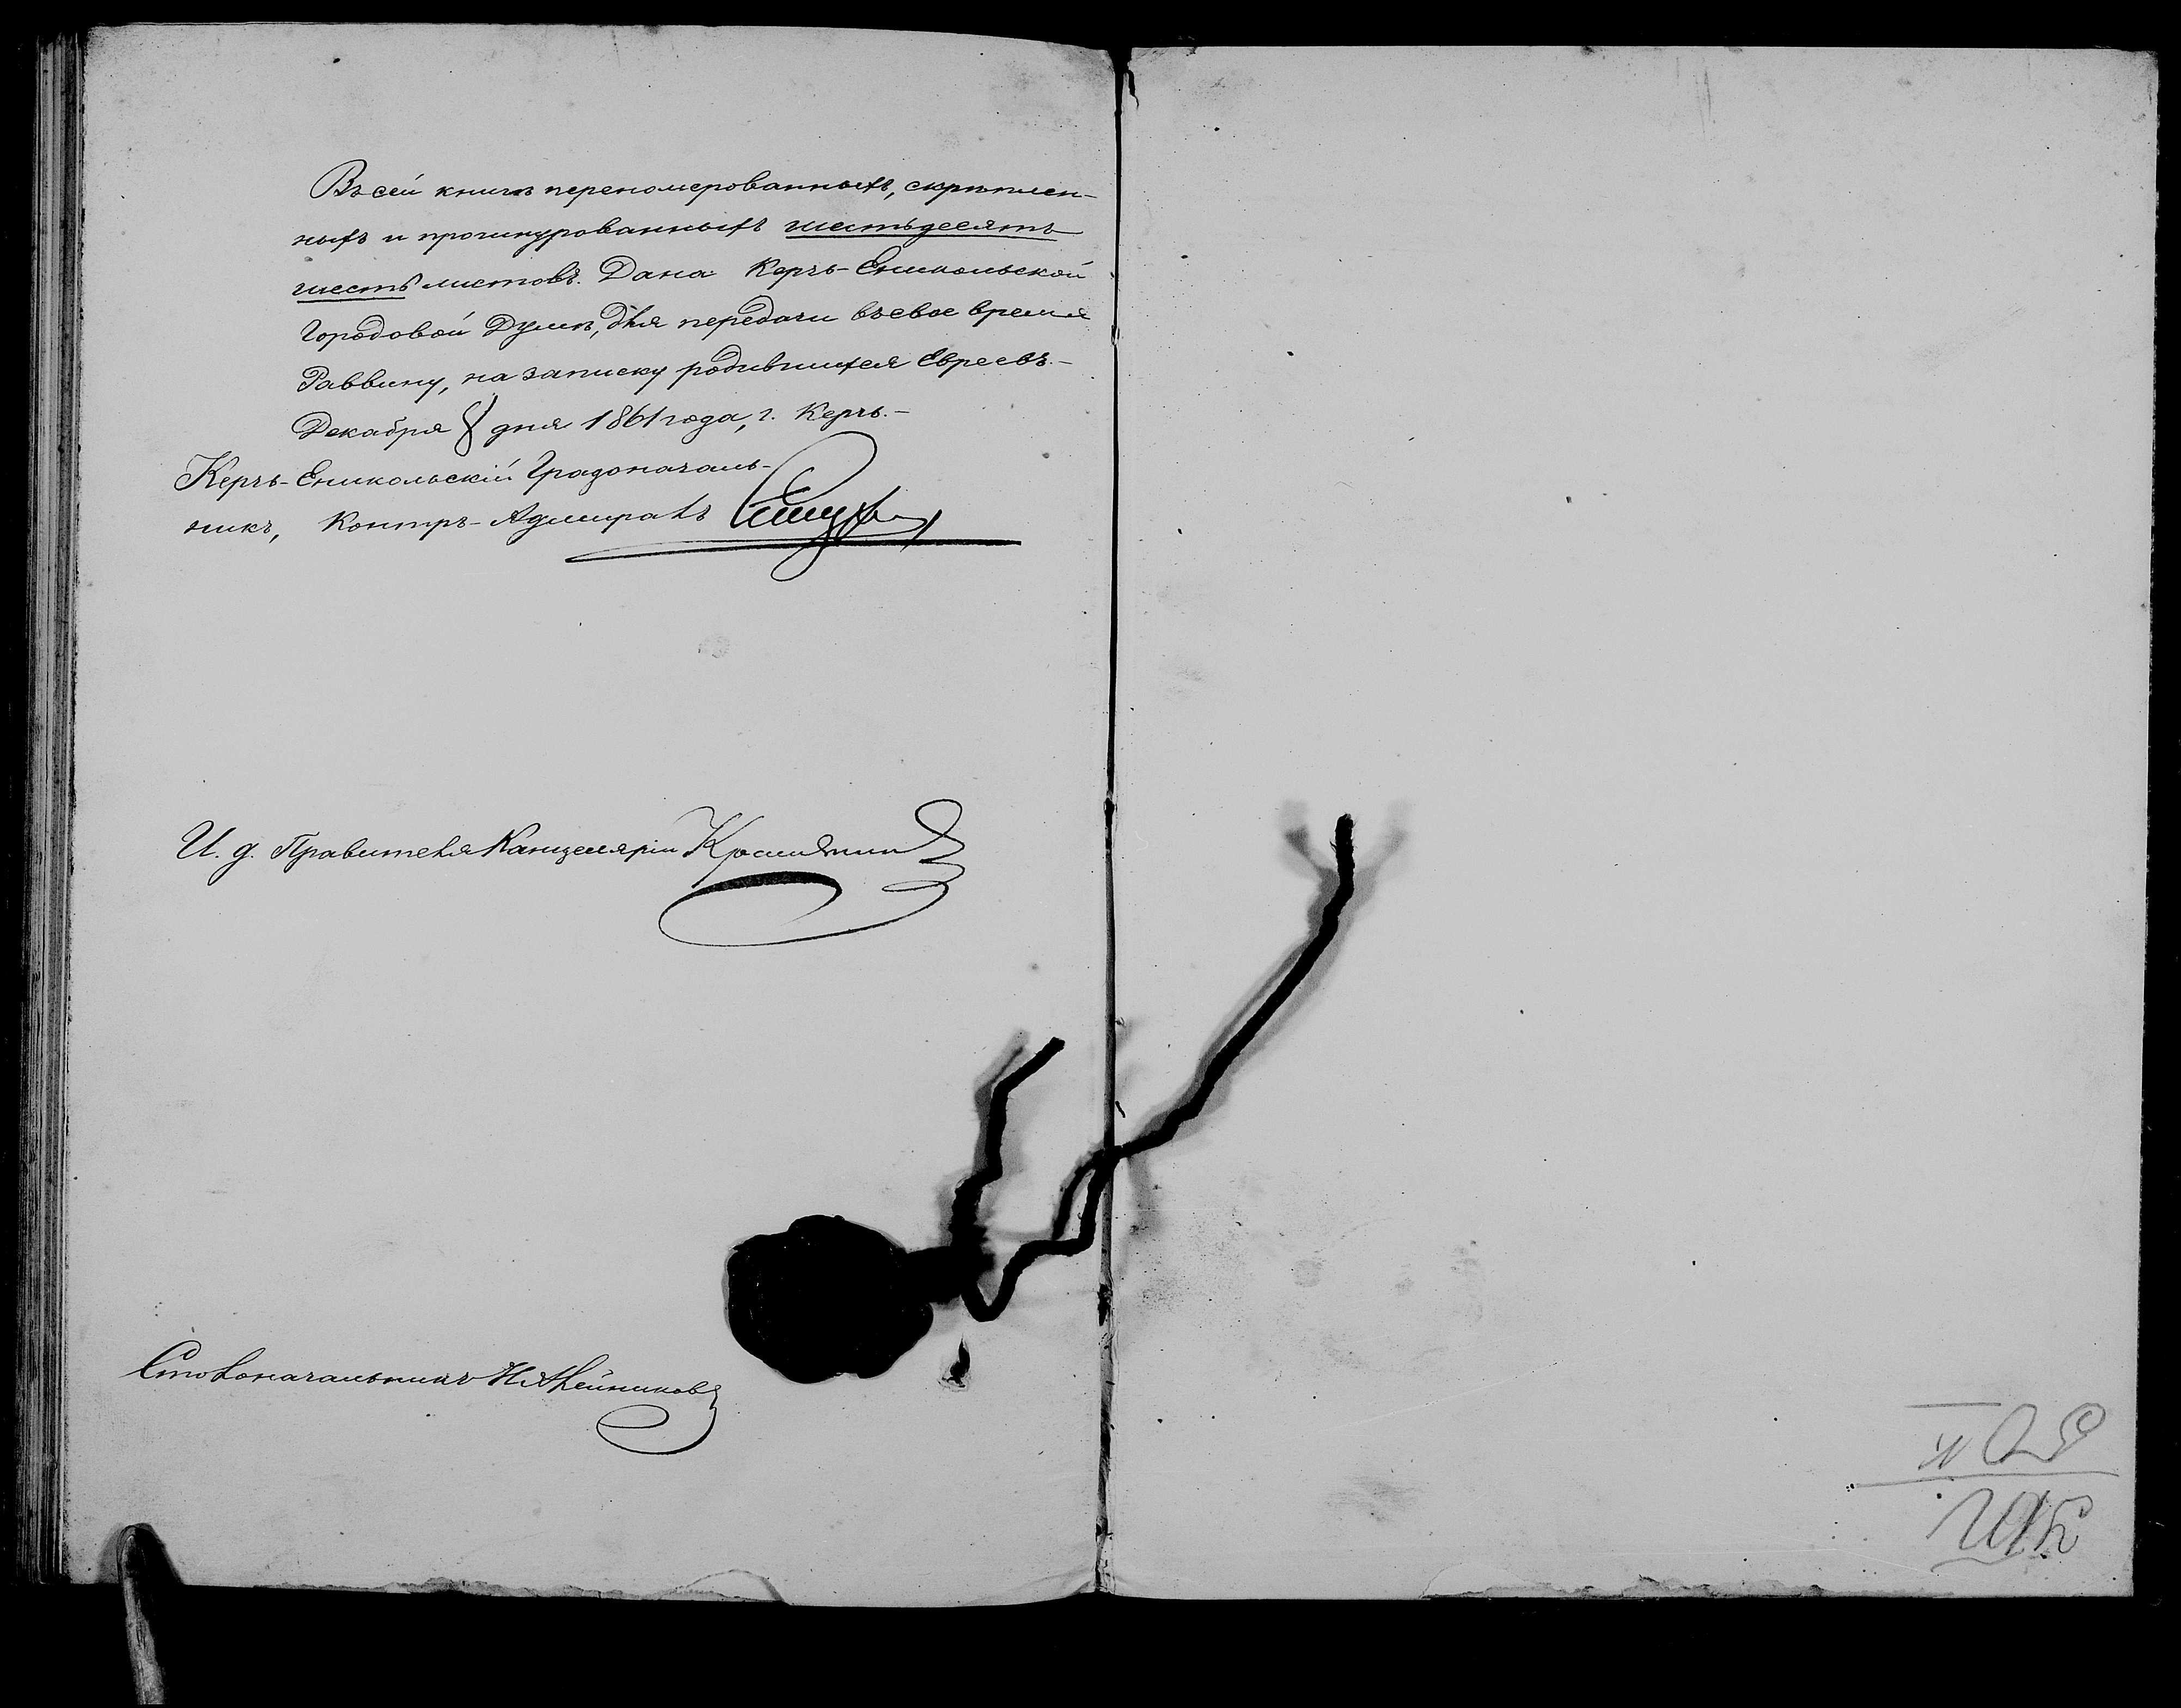 Въ сей книгѣ переномерованныхъ, скрѣплен-
ныхъ и прошнурованныхъ шестьдесятъ
шесть листовъ. Дана Керчь-Еникольской
Городовой Думѣ, для передачи въ свое время
Раввину, на записку родившихся Евреевъ.-
Декабря дня 1861 года, г. Керчь.-
Керчь-Еникольскій Градоначаль-
никъ, Контръ-Адмиралъ
И. д. Правителя Канцеляріи
Столоначальникъ